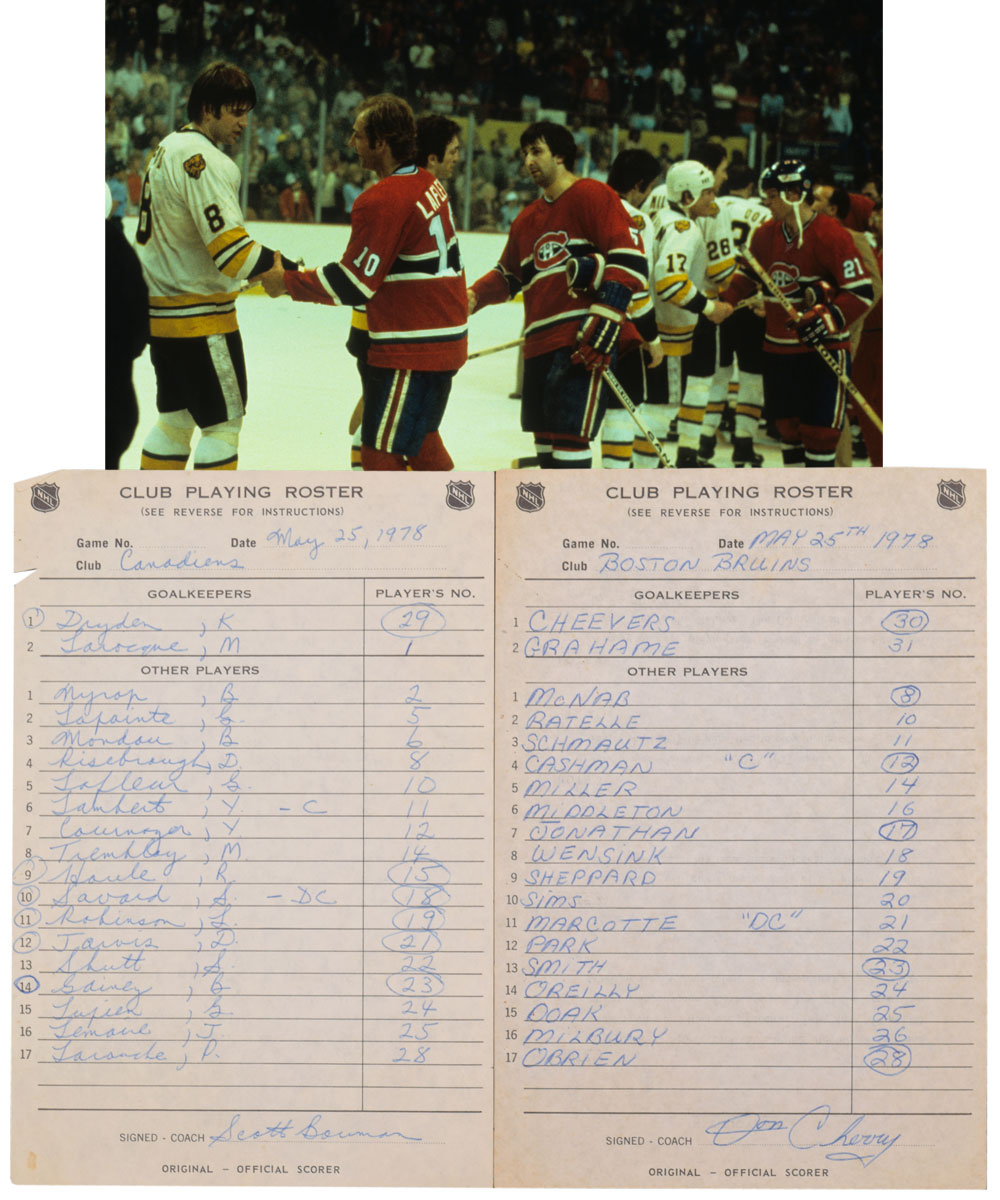 8
8
10
LAFLEUR
10
5
17
26
21
NHL
CLUB PLAYING ROSTER
NHL
(SEE REVERSE FOR INSTRUCTIONS)
Game No. Date May 25, 1978
Club Canadiens
GOALKEEPERS PLAYER'S NO.
1 Dryden, K 29
2 Larocque, M 1
OTHER PLAYERS
1 Nyrop, B 2
2 Lapointe, G. 5
3 Mondou, B 6
4 Risebrough, D. 8
5 Lafleur, G. 10
6 Lambert, Y - C 11
7 Cournoyer, Y. 12
8 Tremblay, M. 14
9 Houle, R. 15
10 Savard, S. - DC 18
11 Robinson, L. 19
12 Jarvis, D. 21
13 Shutt, S. 22
14 Gainey, B 23
15 Lupien, G. 24
16 Lemaire, J. 25
17 Larouche, P. 28
SIGNED - COACH Scott Bowman
ORIGINAL – OFFICIAL SCORER
NHL
CLUB PLAYING ROSTER
NHL
(SEE REVERSE FOR INSTRUCTIONS)
Game No. Date MAY 25TH 1978
Club BOSTON BRUINS
GOALKEEPERS PLAYER'S NO.
1 CHEEVERS 30
2 GRAHAME 31
OTHER PLAYERS
1 McNAB 8
2 RATELLE 10
3 SCHMAUTZ 11
4 CASHMAN "C" 12
5 MILLER 14
6 MIDDLETON 16
7 JONATHAN 17
8 WENSINK 18
9 SHEPPARD 19
10 SIMS 20
11 MARCOTTE "DC" 21
12 PARK 22
13 SMITH 23
14 OREILLY 24
15 DOAK 25
16 MILBURY 26
17 OBRIEN 28
SIGNED - COACH Don Cherry
ORIGINAL – OFFICIAL SCORER